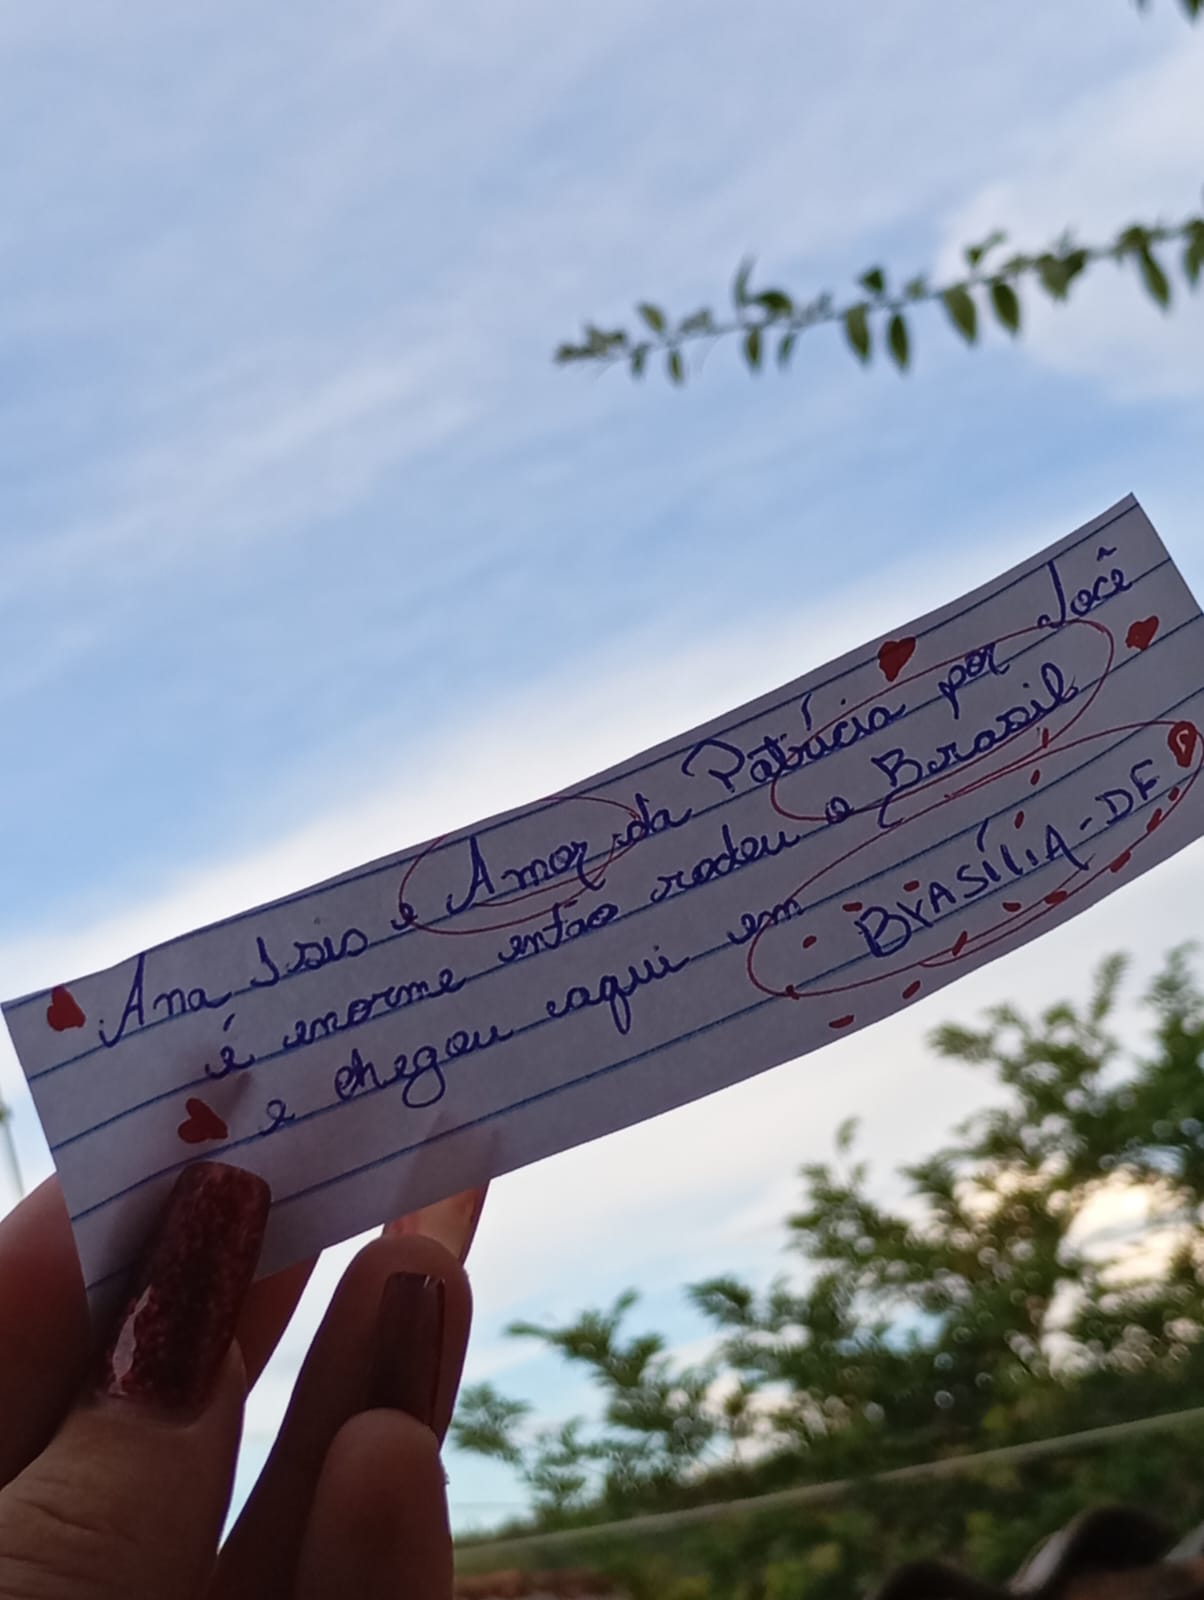 Ana Isis e Amor da Patrícia por Você
é enorme então rodeu o Brasil
e chegou aqui em BrASÍLIA-DF